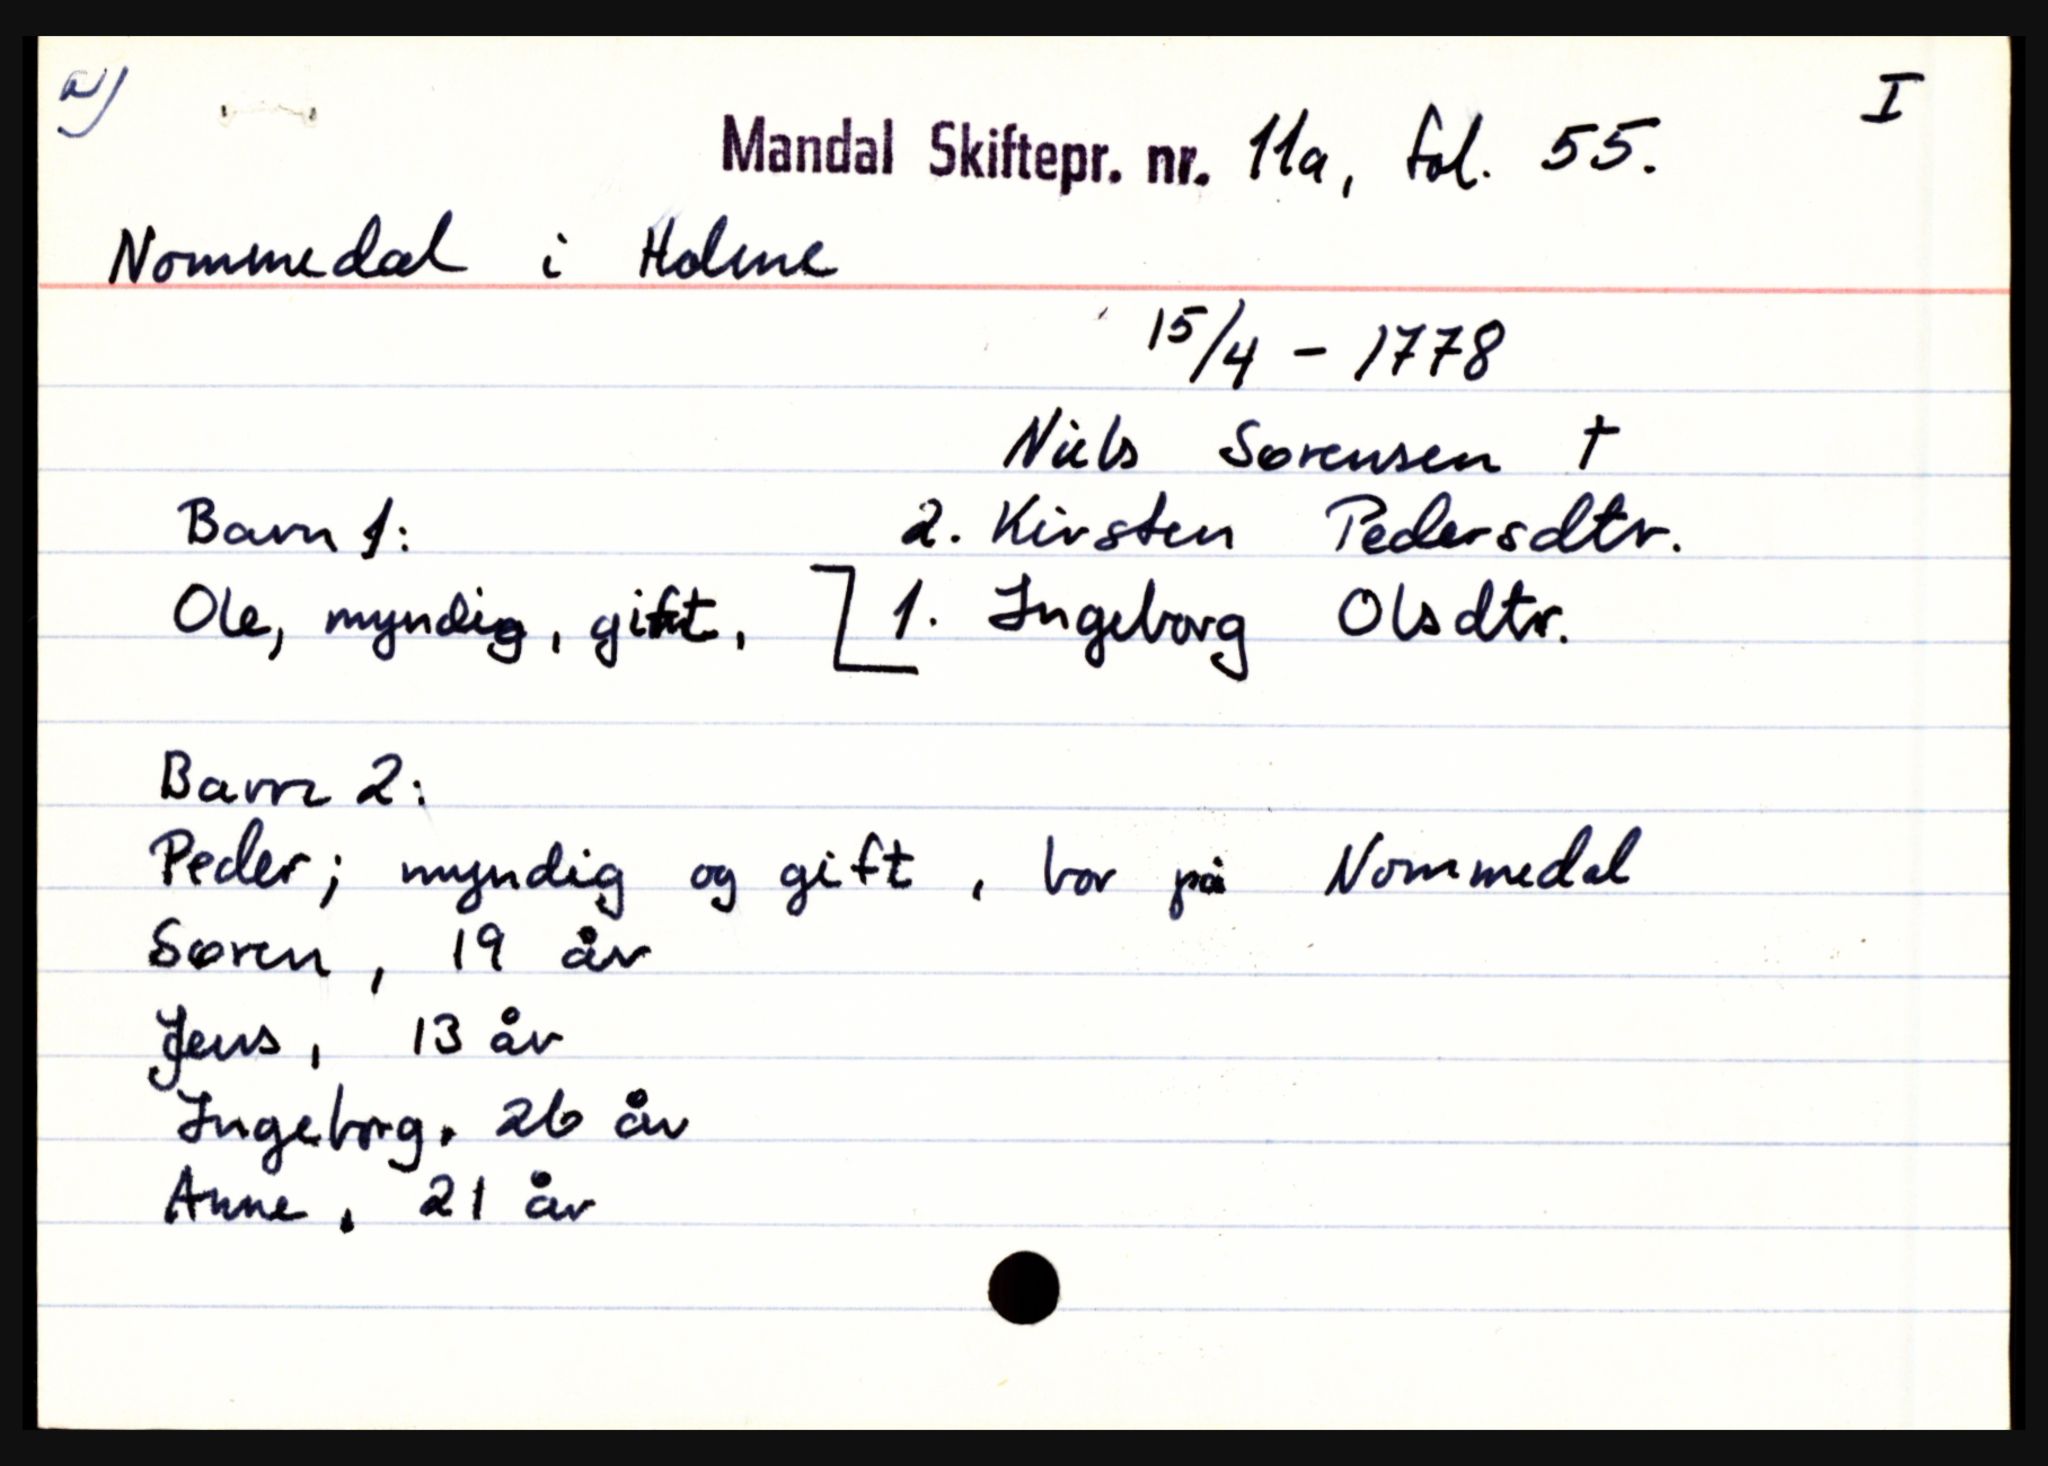 a)
I
Mandal Skiftepr. nr. 11a, fol. 55.
Nommedal i Holme
15/4 - 1778
Niels Sørensen †
Barn 1: 2. Kirsten Pedersdtr.
Ole, myndig, gift, 1. Ingeborg Olsdtr.
Barn 2:
Peder; myndig og gift, bor på Nommedal
Søren, 19 år
Jens, 13 år
Ingeborg. 26 år
Anne, 21 år